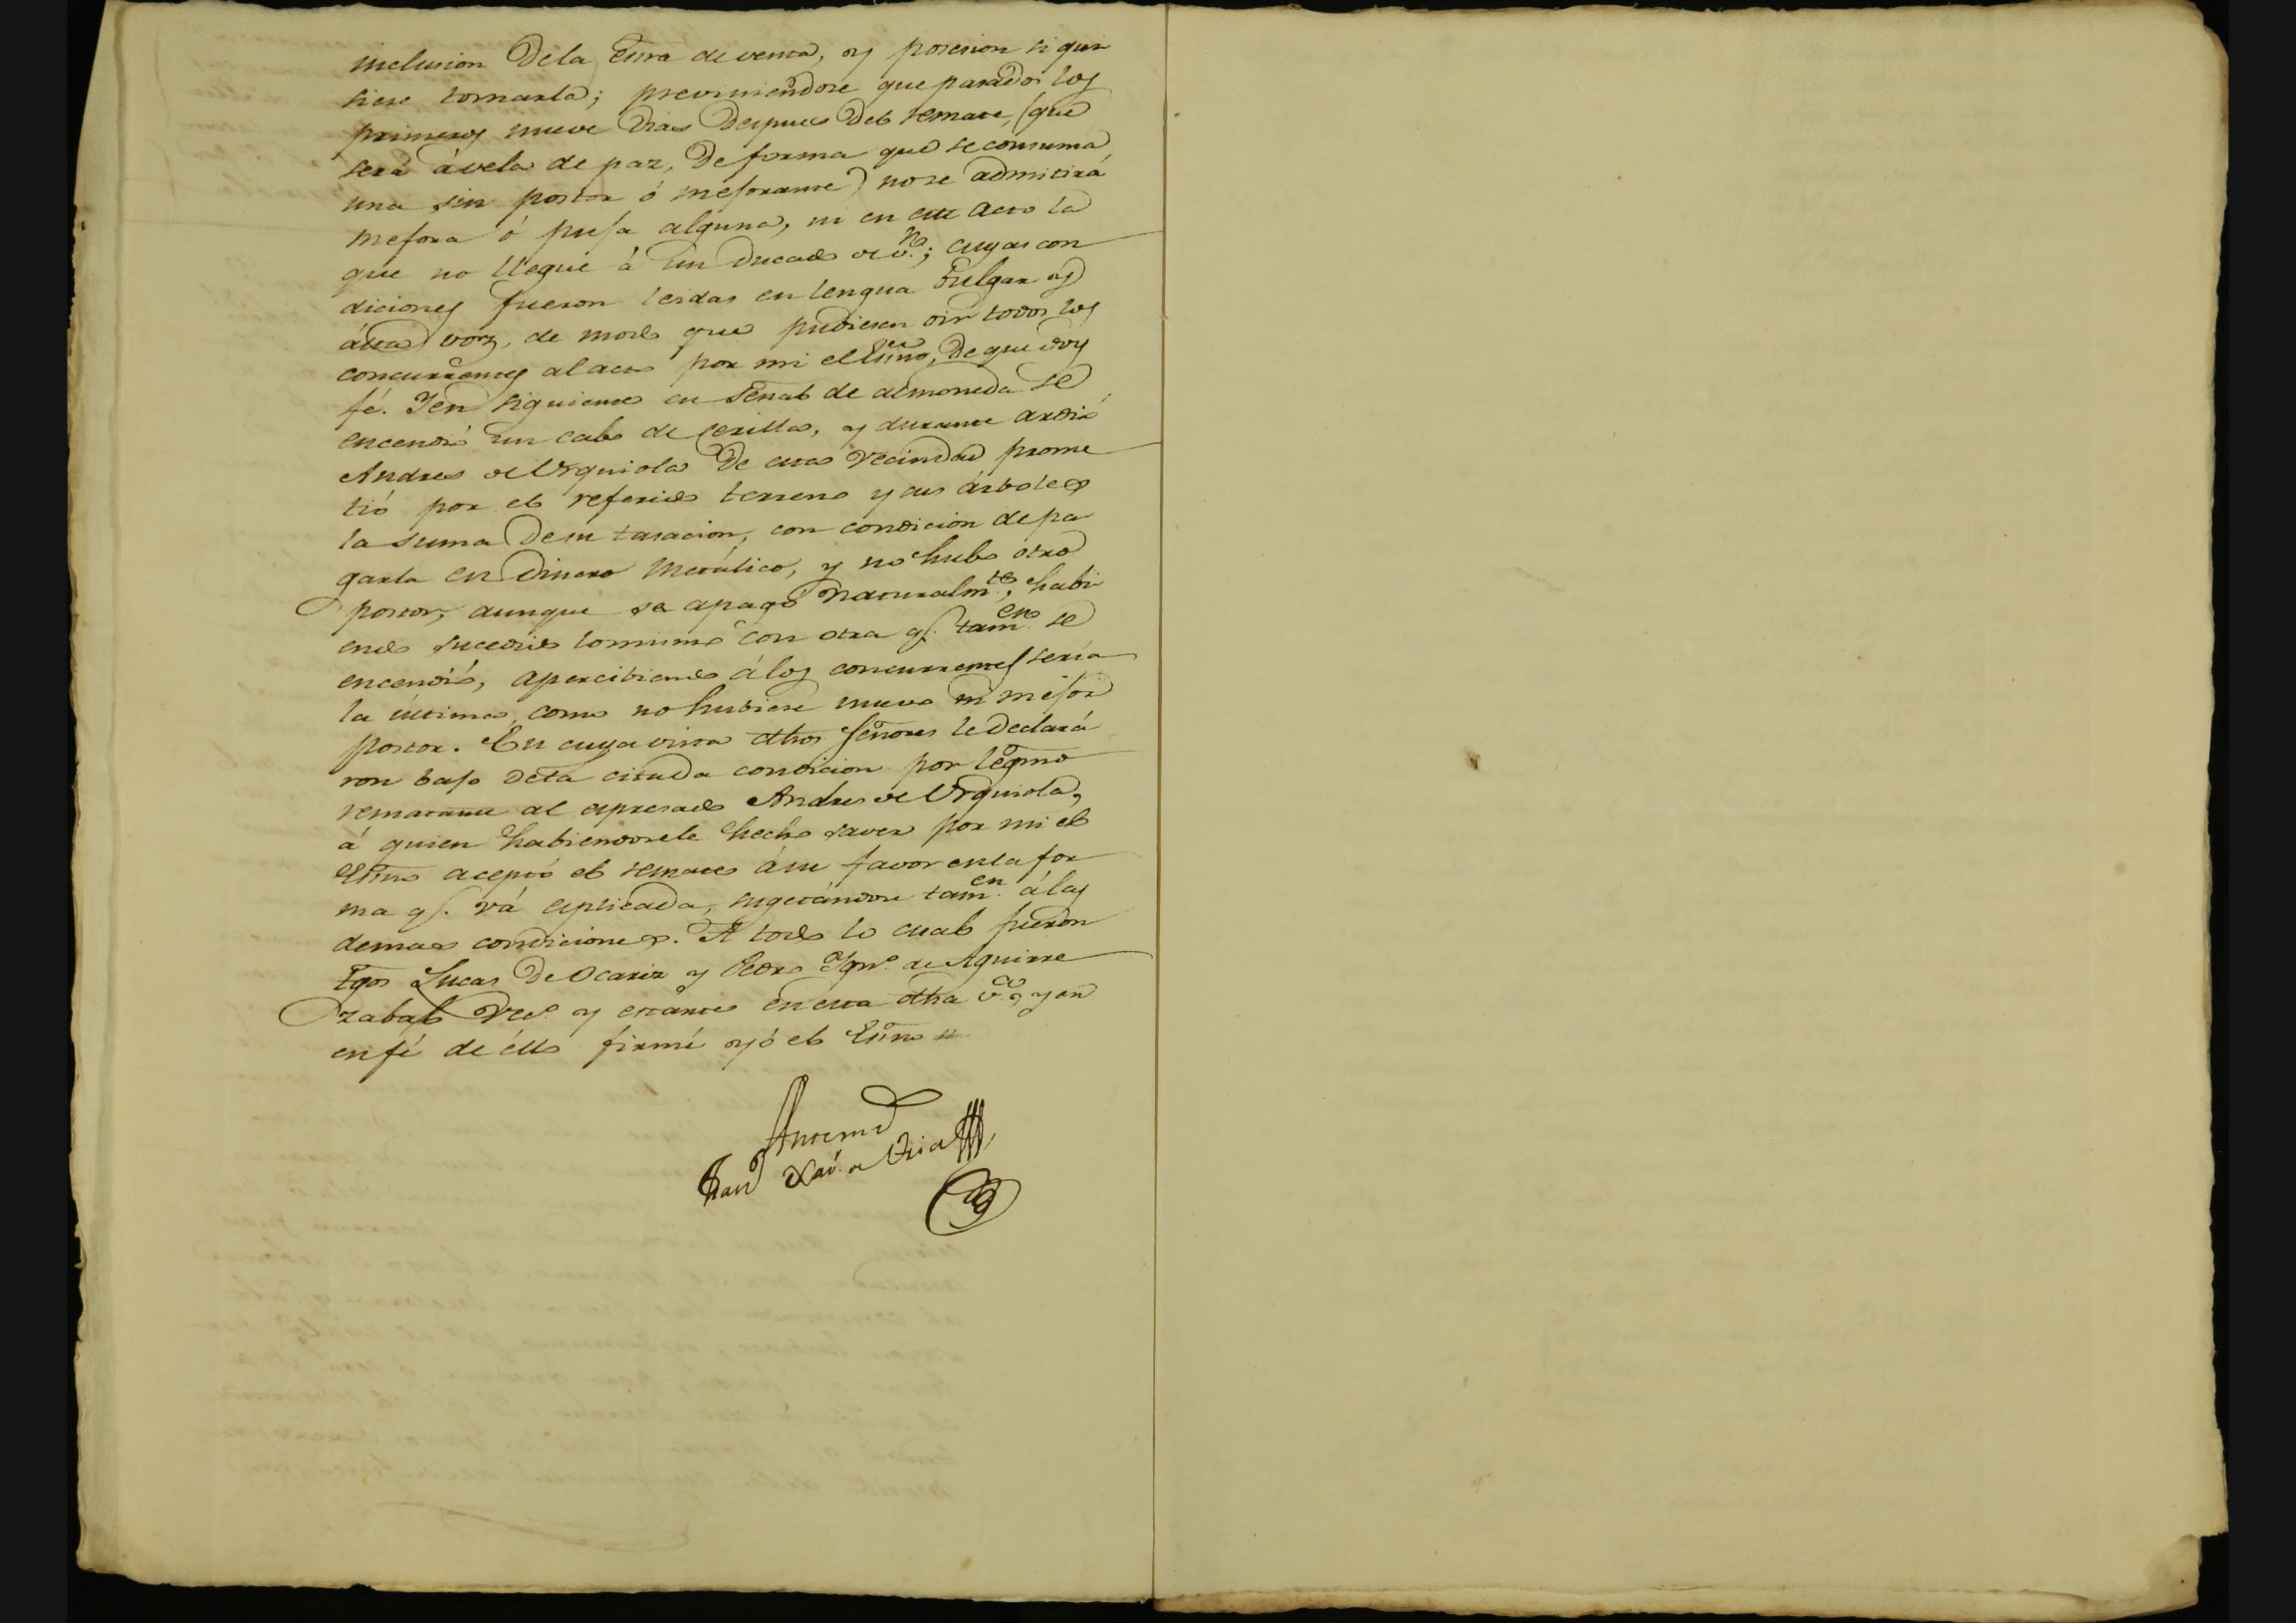 inclusion dela Esñra de venta, y posesion si qui
siere tomarla; previniendose que pasados los
primeros nueve dias despues del remate, (que
será á vela de paz, de forma que se consuma
una sin postor ó mejorante) no se admitirá
mejora ó puja alguna, ni en este acto la
que no llegue á un ducado de v.n; cuyas con
diciones fueron leidas en lengua vulgar y
álta voz, de modo que pudiesen oir todos los
concurrentes al acto por mi el Esñno, de que doy
fé. Y en siguiente en señal de almoneda se
encendió un cabo de cerilla, y durante ardió
Andres de Urquiola de esta vecindad prome
tió por el referido terreno y sus árboles
la suma de su tasacion, con condicion de pa
garla en dinero metálico, y no hubo otro
postor, aunque se apagó naturalm.te, habi
endo sucedido lo mismo con otra q.e tam.en se
encendió, apercibiendo á los concurrentes sería
la última, como no hubiere nuevo ni mejor
postor. En cuya vista dhos señores le declará
ron bajo de la citada condicion por legmo
rematante al expresado Andres de Urquiola,
á quien habiendosele hecho saver por mi el
Esñno aceptó el remate á su favor en la for
ma q.e vá esplicada, sugetándose tam.en á las
demas condiciones. A todo lo cual fueron
tgos Lucas de Ocariz y Pedro Ygn.o de Aguirre
zabal vec.s y estante en esta dha v.a, y en
en fé de éllo firmé yó el Esñno
Ante mi
Fran.co Xav.r de Uria